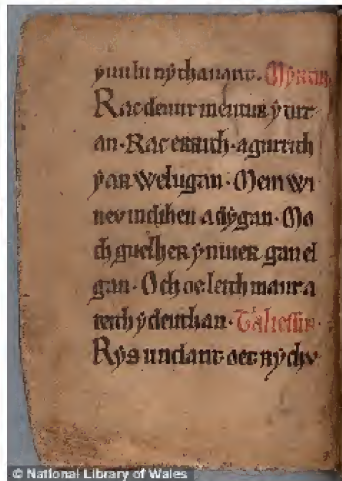 ynlu nychanant. Myrtin.
Rac deuur ineutur ytirr
an. Rac errith. agurrith
yar welugan. Mein wi
nev indiheu adygan. Mo
ch guelher yniuer. gan el
gan. Och oe leith maur a
teith ydeuthan. Taliessin.
Rys undant oet rychv
© National Library of Wales